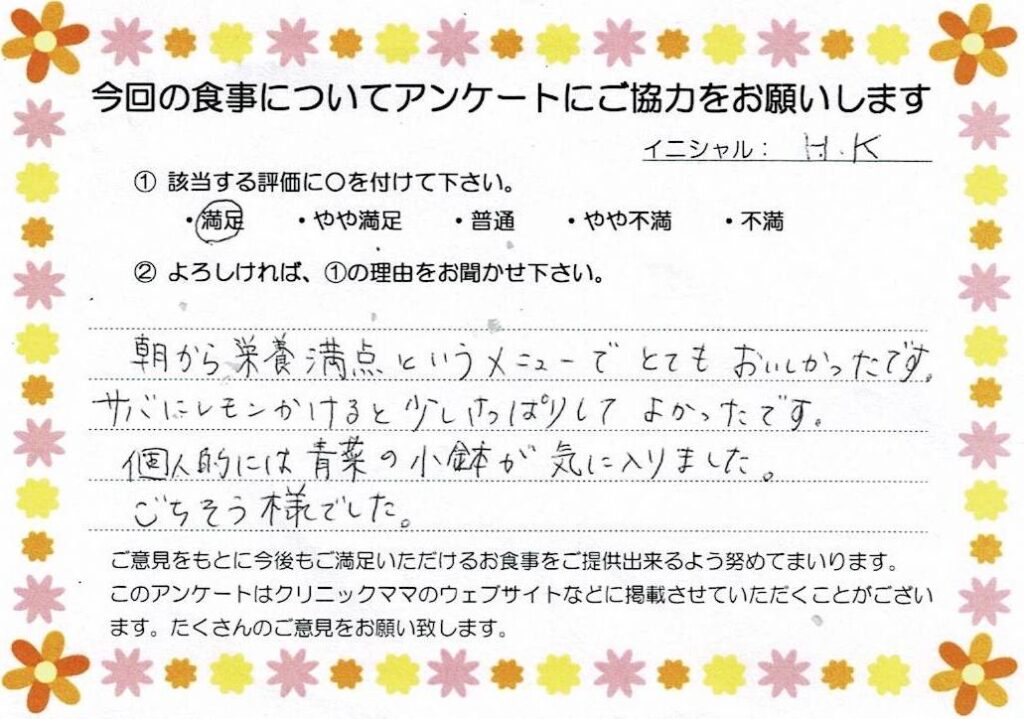 今回の食事についてアンケートにご協力をお願いします
イニシャル： H.K
① 該当する評価に〇を付けて下さい。
・満足 ・やや満足 ・普通 ・やや不満 ・不満
② よろしければ、①の理由をお聞かせ下さい。
朝から栄養満点というメニューでとてもおいしかったです。
サバにレモンかけると少しさっぱりしてよかったです。
個人的には青菜の小鉢が気に入りました。
ごちそう様でした。
ご意見をもとに今後もご満足いただけるお食事をご提供出来るよう努めてまいります。
このアンケートはクリニックママのウェブサイトなどに掲載させていただくことがござい
ます。たくさんのご意見をお願い致します。